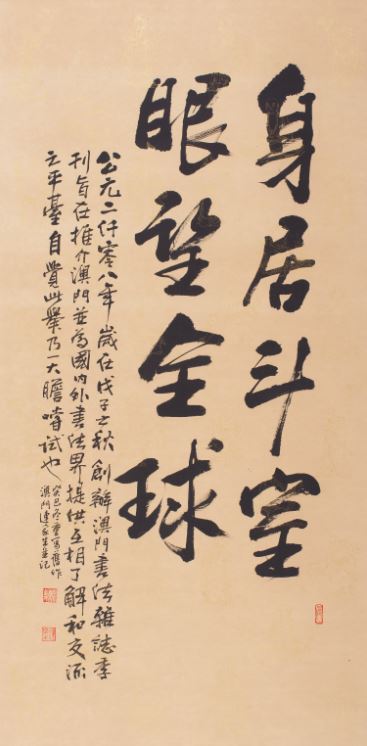 身居斗室
眼望全球
公元二仟零八年歲在戊子之秋創辦澳門書法雜誌季
刊旨在推介澳門並為國內外書法界提供互相了解和交流
之平臺自覺此舉乃一大膽嘗試也
癸巳冬重寫舊作
澳門連家生並記